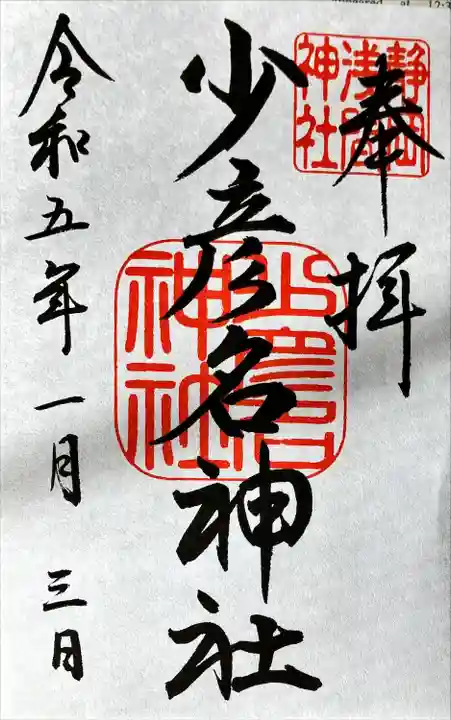 奉拝
静岡
浅間
神社
少彦名神社
少彦名
神社
令和五年一月三日